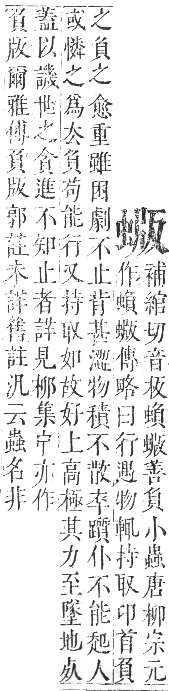 蝂
補綰切音板蝜蝂善負小蟲唐柳宗元
作蝜蝂傳略曰行遇物輒持取卬首負
之負之愈重雖困劇不止背甚澀物積不散卒躓仆不能起人
或憐之爲去負苟能行又持取如故好上高極其力至墜地死
蓋以譏世之貪進不知止者詳見柳集中亦作
負版爾雅傅負版郭註未詳舊註汎云蟲名非